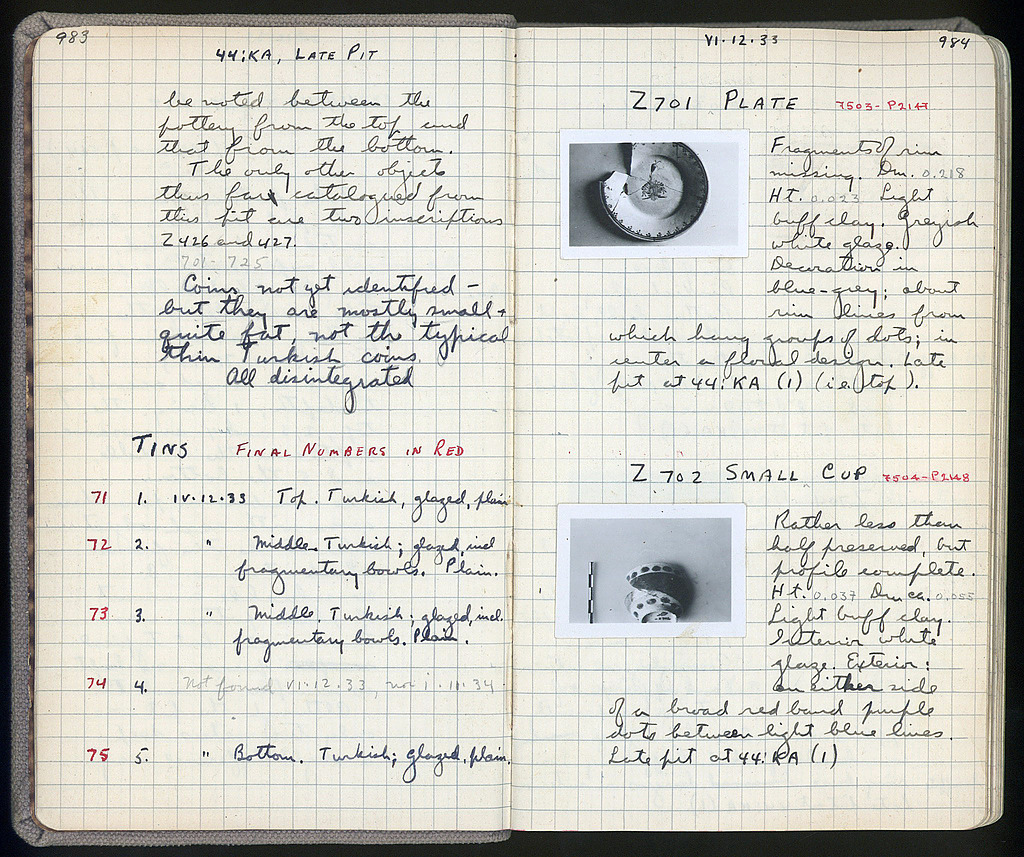 983
44:KA, LATE PIT
be noted between the
pottery from the top and
that from the bottom.
The only other objects
thus far catalogued from
this pit are two inscriptions
Z426 and 427.
701-725
Coins not yet identified -
but they are mostly small +
quite fat, not the typical
thin Turkish coins.
All disintegrated
TINS FINAL NUMBERS IN RED
71 1. IV.12.33 Top. Turkish, glazed, plain
72 2. " Middle. Turkish; glazed, incl
fragmentary bowls. Plain.
73 3. " Middle. Turkish; glazed, incl.
fragmentary bowls. Plain.
74 4. Not found VI.12.33, nor I.11.34.
75 5. " Bottom. Turkish; glazed, plain.
VI.12.33 984
Z701 PLATE 7503-P2147
Fragments of rim
missing. Dm. 0.218
Ht. 0.023 Light
buff clay. Greyish
white glaze.
Decoration in
blue-grey; about
rim lines from
which hang groups of dots; in
center a floral design. Late
pit at 44:KA (1) (i.e. top).
Z 702 SMALL CUP 7504-P2148
Rather less than
half preserved, but
profile complete.
Ht. 0.037 Dm ca. 0.055
Light buff clay.
Interior white
glaze. Exterior:
on either side
of a broad red band purple
dots between light blue lines.
Late pit at 44:KA (1)